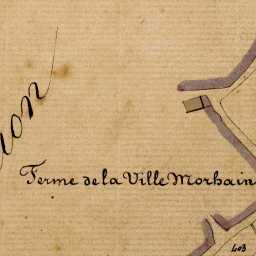 Ferme de la Ville Morhain
403